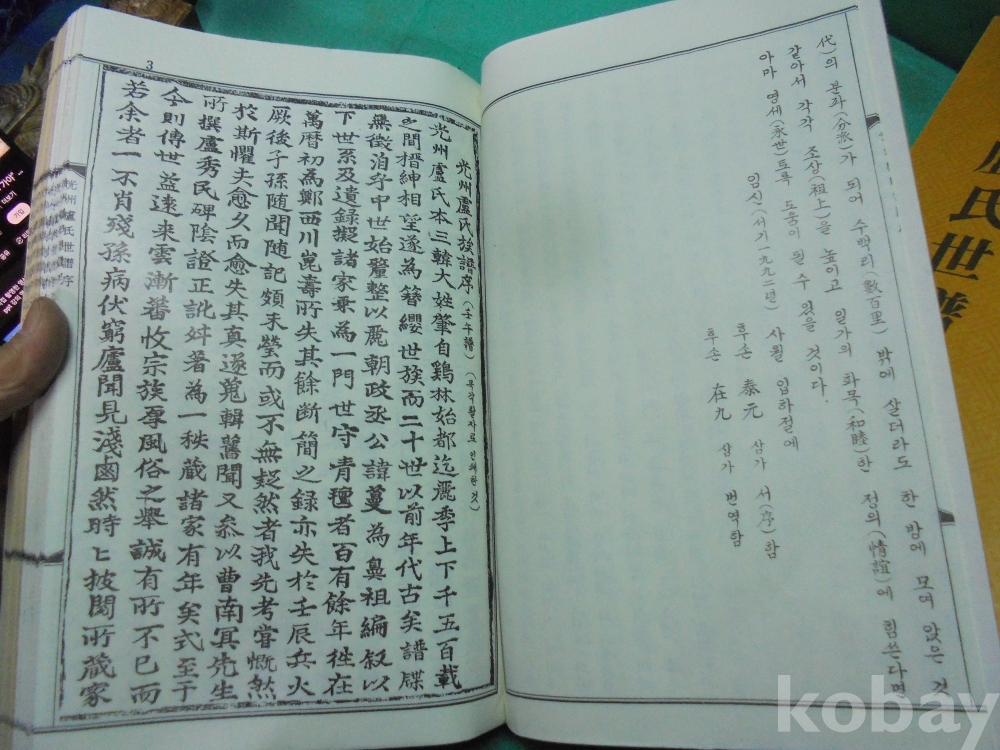 代)의 분파(分派)가 되어 수백리(數百里) 밖에 살더라도 한 방에 모여 앉은 것
같아서 각각 조상(祖上)을 높이고 일가의 화목(和睦)한 정의(情誼)에 힘쓴다면
아마 영세(永世)토록 도움이 될 수 있을 것이다.
임신(서기一九九二年) 사월 입하절에
후손 泰元 삼가 서(序)함
후손 在九 삼가 번역함
3
光州盧氏族譜序(壬午譜)(목각활자로 인쇄한 것)
光州盧氏本三韓大姓肇自鷄林始都迄麗季上下千五百載
之間搢紳相望遂為簪纓世族而二十世以前年代古矣譜牒
無徵洎乎中世始釐整以麗朝政丞公諱蔓為鼻祖編叙以
下世系及遺錄擬諸家乗為一門世守青氊者百有餘年徃在
萬曆初為鄭西川崑壽所失其餘断簡之録亦失於壬辰兵火
厥後子孫随聞随記頗未瑩而或不無疑然者我先考嘗慨然
於斯懼夫愈久而愈失其真遂蒐輯舊聞又叅以曹南冥先生
所撰盧秀民碑陰證正訛舛著為一秩蔵諸家有年矣式至于
今則傳世益遠來雲漸蕃收宗族厚風俗之舉誠有所不已而
若余者一不肖殘孫病伏窮廬聞見淺鹵然時匕披閱所蔵家
光州盧氏世譜序
氏世譜
kobay